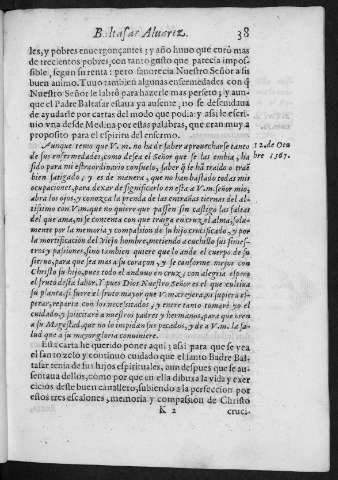 Baltasar Aluarez. 38
les, y pobres enuergonçantes; y año huuo que curò mas
de trecientos pobres, con tanto gusto que parecia impos-
sible, segun su renta: pero fauorecia Nuestro Señor a su
buen animo. Tuuo tambien algunas enfermedades con q̃
Nuestro Señor le labrò para hazerle mas perfeto; y aun-
que el Padre Baltasar estaua ya ausente, no se descuidaua
de ayudarle por cartas del modo que podia: y assi le escri-
uio vna desde Medina por estas palabras, que eran muy a
proposito para el espiritu del enfermo.
Aunque temo que V. m. no ha de saber aprouecharse tanto
de sus enfermedades, como desea el Señor que se las embia, ha
sido para mi estraordinario consuelo, saber q̃ le hà traido o traè
bien fatigado, y es de manera, que no han bastado todas mis
ocupaciones, para dexar de significarlo en esta a V. m. señor mio,
abra los ojos, y conozca la prenda de las entrañas tiernas del al-
tissimo con V. m. que no quiere que passen sin castigo las faltas
del que ama, ni se contenta con que traiga en cruz el alma, sola-
mente por la memoria y compassion de su hijo crucificado, y por
la mortificacion del Viejo hombre, metiendo a cuchillo sus sinies-
tros y passiones, sino tambien quiere que lo ande el cuerpo de su
sieruo, para que sea mas a su coraçon, y se conforme mejor con
Christo su hijo, pues todo el anduuo en cruz; con alegria espero
el fruto desta labor. Y pues Dios Nuestro Señor es el que cultiua
su planta, si fuere el fruto mayor que V. m. creyera, ni supiera es-
perar, reparta con los necessitados, y entre tanto tomarè yo el
cuidado, y suscitarè a nuestros padres y hermanos, para que oren
a su Magestad, que no lo impidan sus pecados, y dè a V. m. la sa-
lud que a su mayor gloria conuiniere.
12. de Otu
bre 1567.
Esta carta he querido poner aqui; assi para que se vea
el santo zelo y continuo cuidado que el santo Padre Bal-
tasar tenia de sus hijos espirituales, aun despues que se au-
sentaua dellos, como por que en ella dibuxa la vida y exer
cicios deste buen cauallero, subiendo a la perfeccion por
estos tres escalones, memoria y compassion de Christo
K 2 cruci-